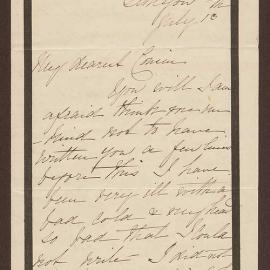 July 13
My dearest Cousin
You will I am
afraid think me un
kind not to have
written you a few lines
before this I have
been very ill with a
bad cold & my head
so bad that I could
not write I did not